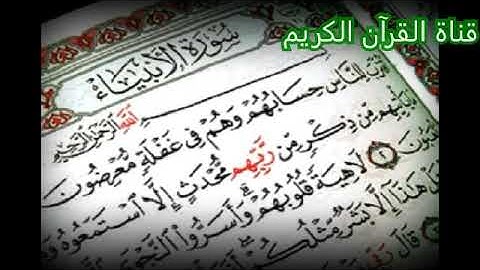 قناة القرآن الكريم
سُورَةُ الأَنبِيَاءِ
اللَّهِ الرَّحْمَٰنِ الرَّحِيمِ
لِلنَّاسِ حِسَابُهُمْ وَهُمْ فِي غَفْلَةٍ مُّعْرِضُونَ
مِّن ذِكْرٍ مِّن رَّبِّهِم مُّحْدَثٍ إِلَّا ٱسْتَمَعُوهُ
٢ لَاهِيَةً قُلُوبُهُمْ وَأَسَرُّوا۟ ٱلنَّجْوَى
هَٰذَآ إِلَّا بَشَرٌ مِّثْلُكُمْ
قَالَ